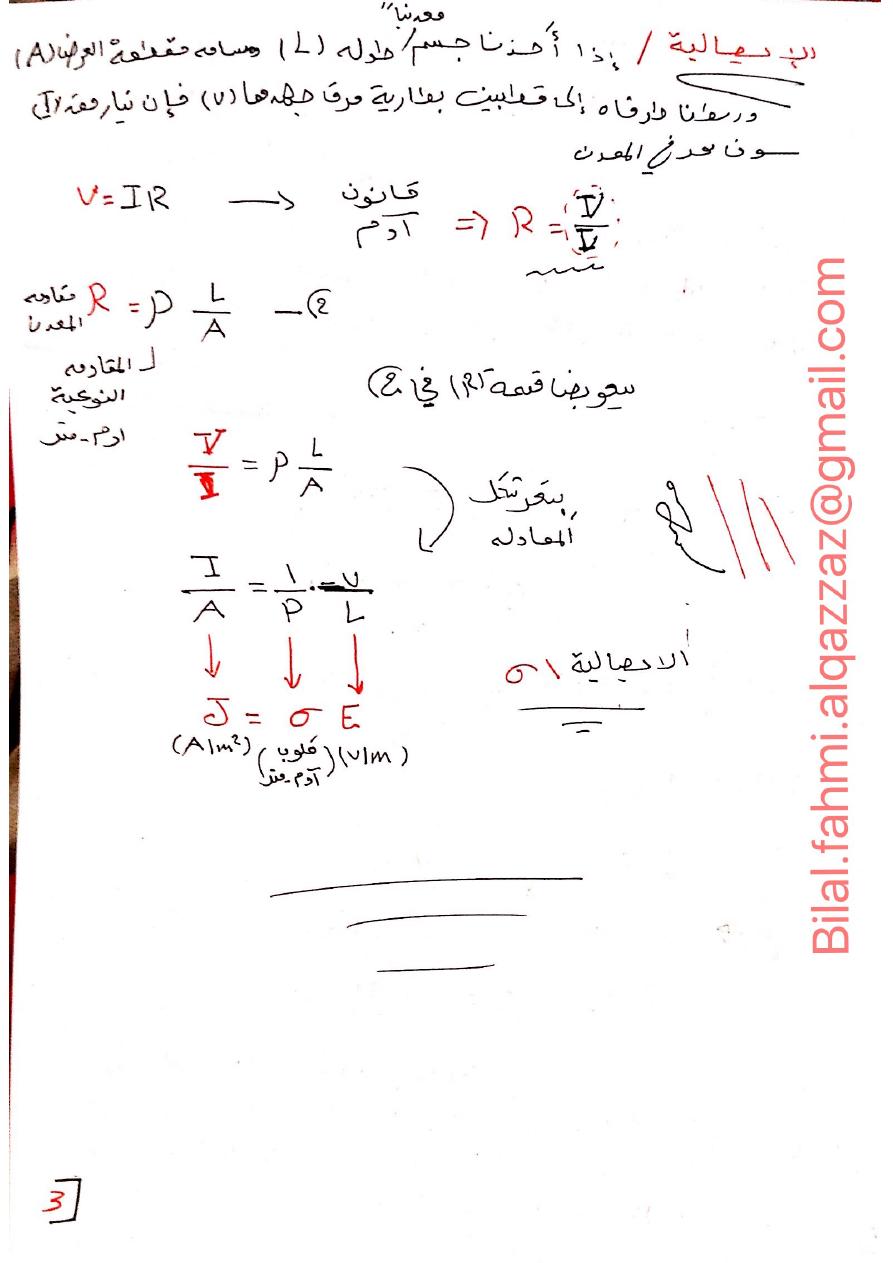 معدنيا"
الايصالية / إذا أخذنا جسم طوله (L) ومساحه مقطعة العرضي (A)
وربطنا طرفاه إلى قطبين بطارية فرق جهدها (V) فإن تيار مقداره (I)
سوف يمر في المعدن
V = IR → قانون أوم ⇒ R = V/I
مقاومه المعدن R = ρ L/A — ②
المقاومه النوعية
اوم-متر
بتعويض قيمة (R) في ②
V/I = ρ L/A
بتغير شكل المعادله
I/A = 1/ρ · V/L
الايصالية \ σ
J = σ E
(A/m²) (مقلوب أوم-متر) (V/m)
3
Bilal.fahmi.alqazzaz@gmail.com